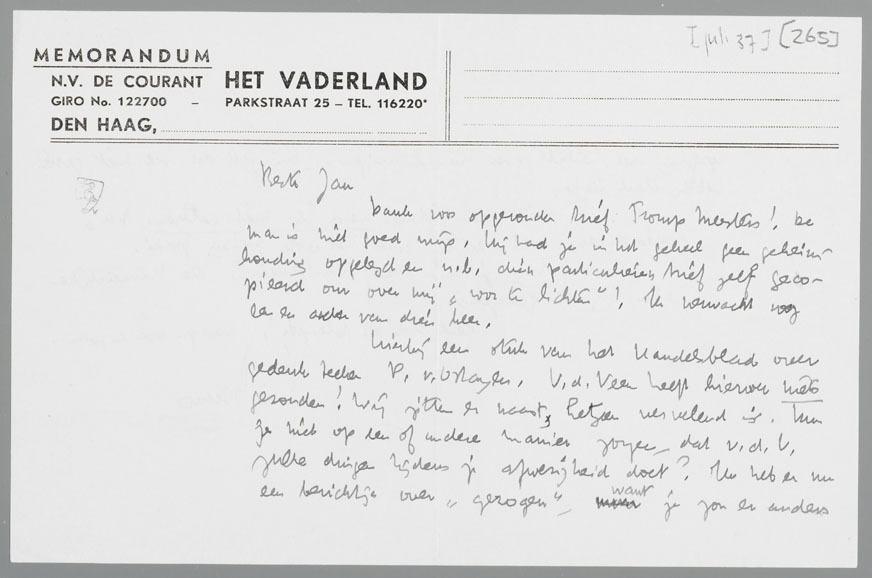 [juli 37] [265]
MEMORANDUM
N.V. DE COURANT HET VADERLAND
GIRO No. 122700 – PARKSTRAAT 25 – TEL. 116220*
DEN HAAG,
Beste Jan
Dank voor opgezonden brief Tromp Meesters! De
man is niet goed wijs. Hij had je in het geheel geen geheim-
houding opgelegd en n.b. dien particulieren brief zelf geco-
pieerd om over mij "voor te lichten"! Ik verwacht nog
van dien heer.
Hierbij een stuk van het Handelsblad over
gedenkteeken P. v. Ostayen. V.d. Veen heeft hierover niets
gezonden! Wij zitten er naast, hetgeen vervelend is. Kun
je niet op een of andere manier zorgen, dat v.d. V.
zulke dingen tijdens je afwezigheid doet? Ik heb er nu
een berichtje over "gezogen", want je zou er anders